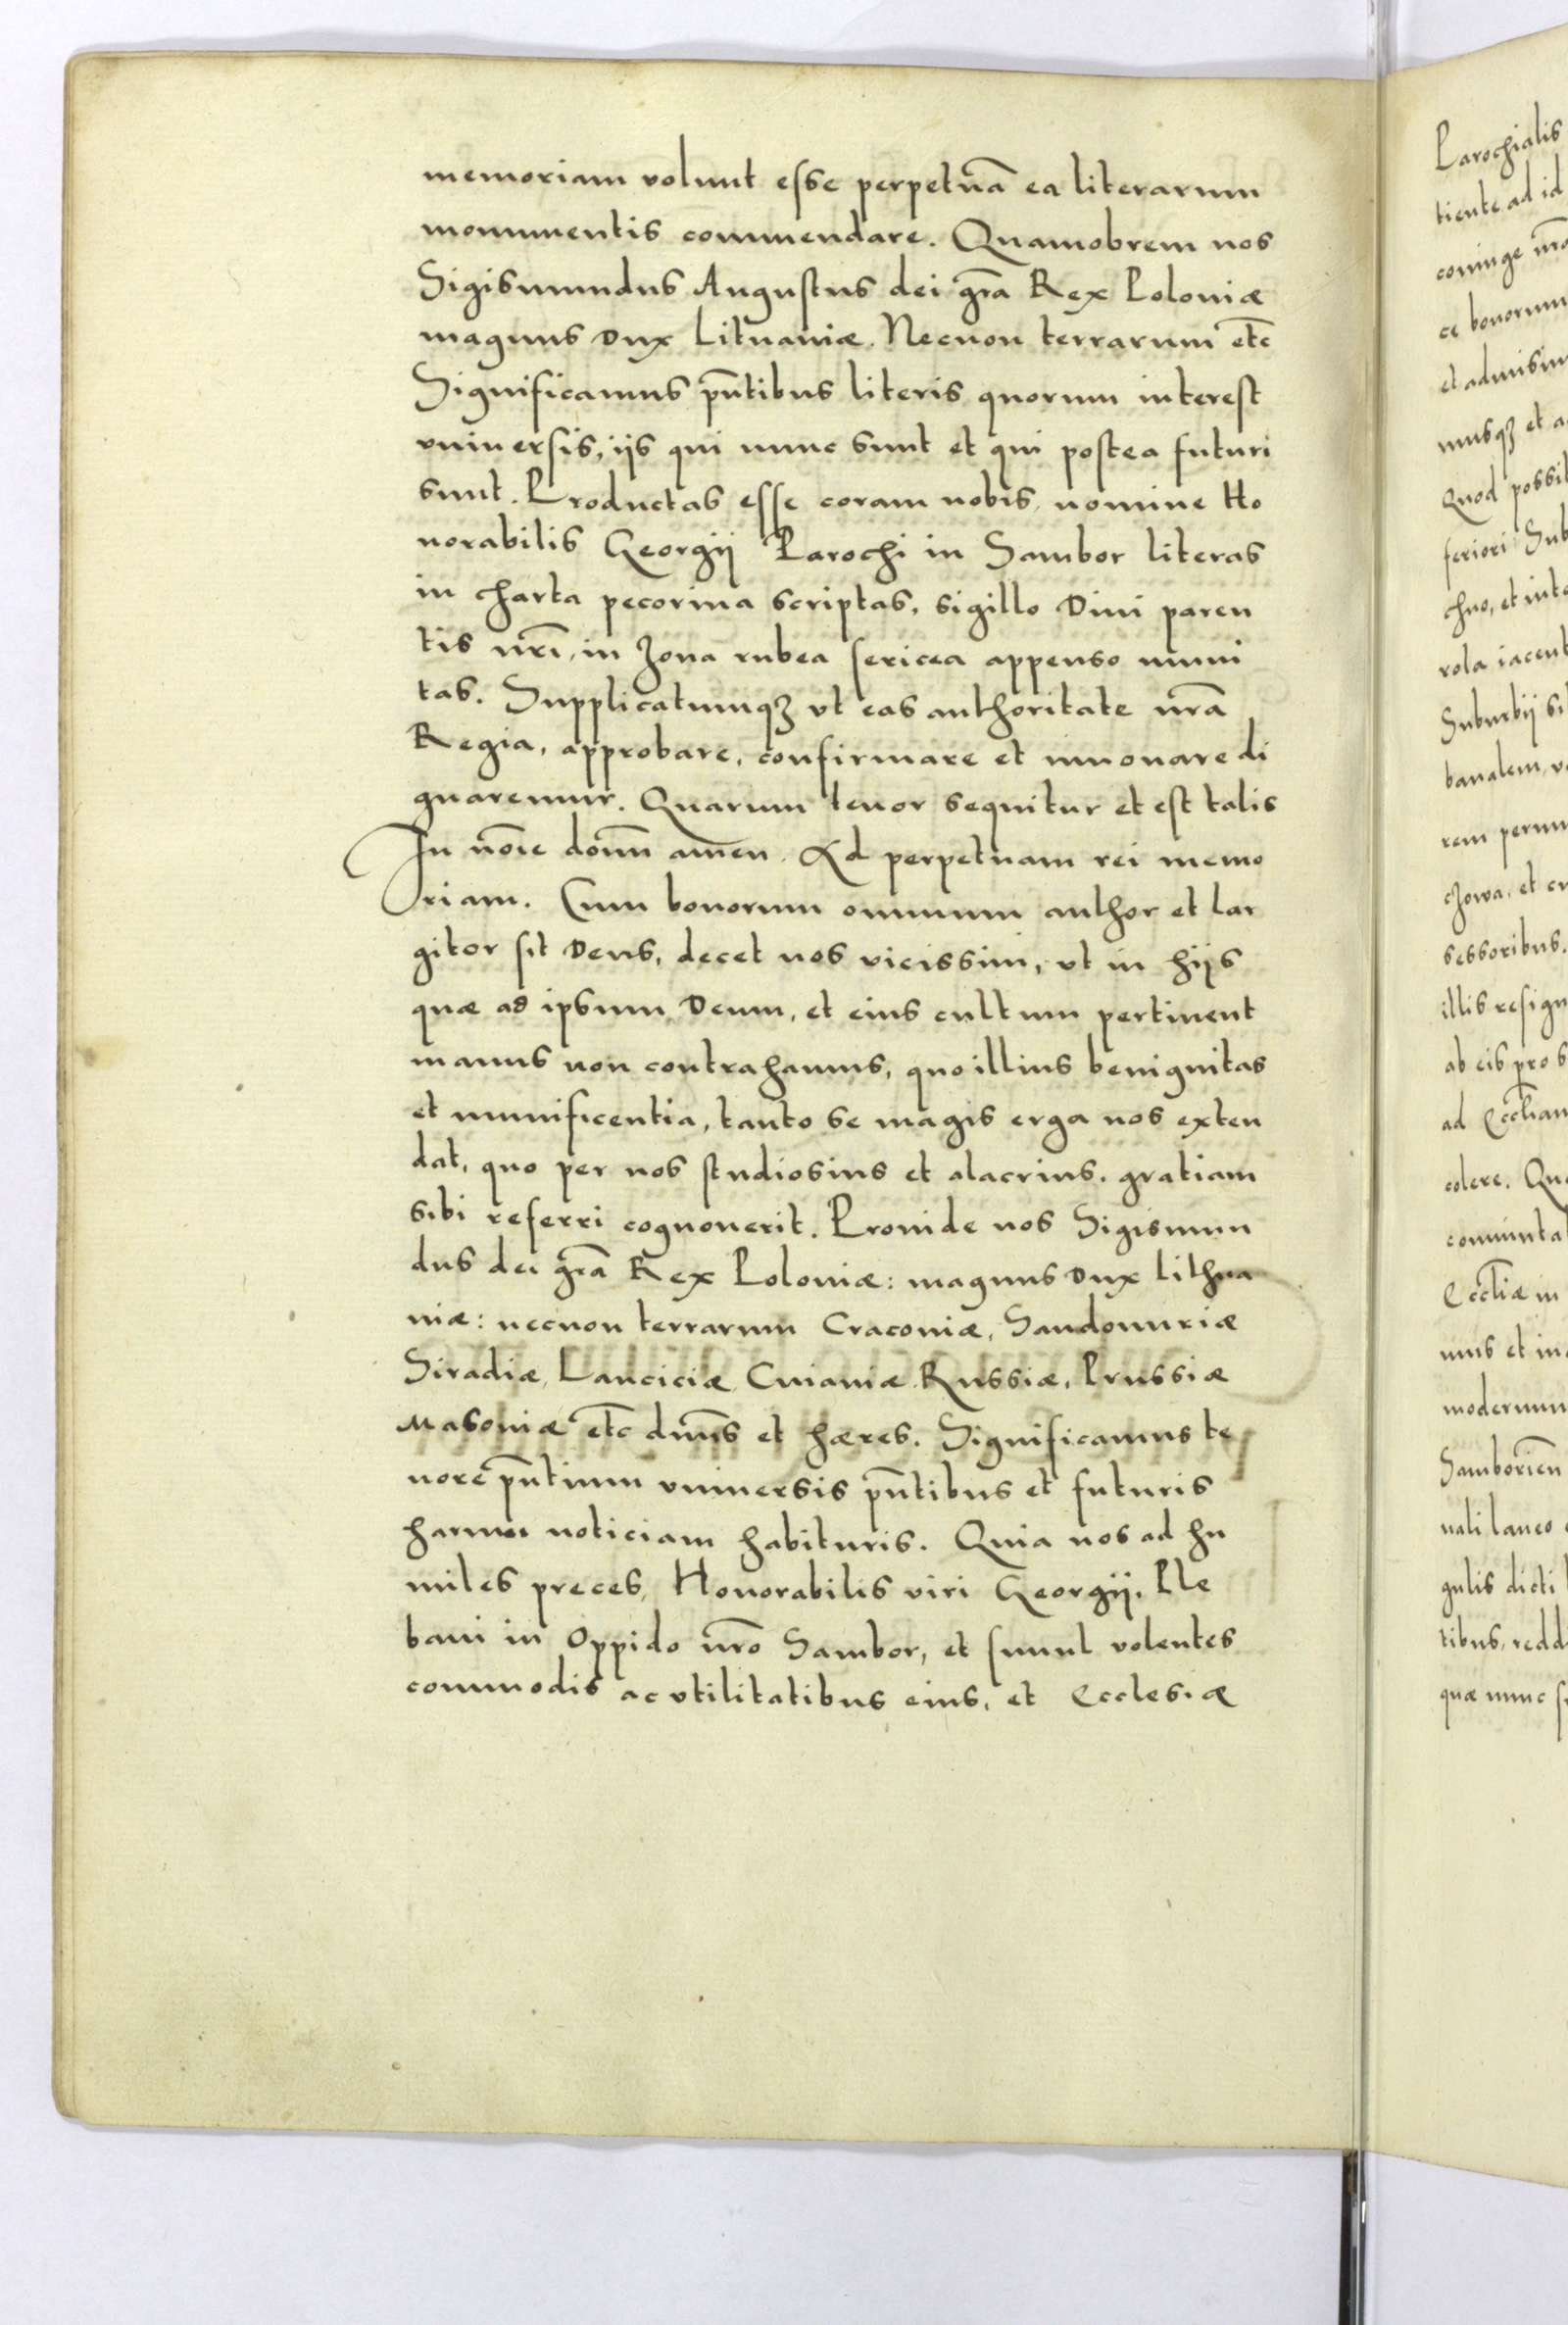 memoriam volunt esse perpetuã ea literarum
monumentis commendare. Quamobrem nos
Sigismundus Augustus dei gr̃a Rex Poloniæ
magnus Dux Lituaniæ. Necnon terrarum etc̃
Significamus pñtibus literis quorum interest
vniuersis, ijs qui nunc sunt et qui postea futuri
sunt. Productas esse coram nobis, nomine Ho
norabilis Georgij Parochi in Sambor literas
in charta pecorina scriptas, sigillo Diui paren
tis nr̃i, in zona rubea sericea appenso muni
tas. Supplicatumqꝫ vt eas authoritate nr̃a
Regia, approbare, confirmare et innouare di
gnaremur. Quarum tenor sequitur et est talis
In nõie domĩ amen. Ad perpetuam rei memo
riam. Cum bonorum omnium author et lar
gitor sit Deus, decet nos vicissim, vt in hijs
quæ ad ipsum Deum, et eius cultum pertinent
manus non contrahamus, quo illius benignitas
et munificentia, tanto se magis erga nos exten
dat, quo per nos studiosius et alacrius, gratiam
sibi referri cognouerit. Proinde nos Sigismun
dus dei gr̃a Rex Poloniæ: magnus Dux Lithua
niæ: necnon terrarum Cracouiæ, Sandomiriæ
Siradiæ, Lanciciæ, Cuiauiæ Russiæ, Prussiæ
Masouiæ etc̃ dñus et hæres. Significamus te
nore pñtium vniuersis pñtibus et futuris
harum noticiam habituris. Quia nos ad hu
miles preces, Honorabilis viri Georgij. Ple
bani in Oppido nr̃o Sambor, et simul volentes
commodis ac vtilitatibus eius, et Ecclesiæ
Parochialis
tiente ad id
coniuge
ce bonorum
et admisim
musqꝫ et a
Quod possit
feriori Sub
chno, et inte
rola iacent
Suburbij si
banalem, v
rem perun
et
sessoribus.
illis resign
ab eis pro s
ad Eccl̃iam
colere. Qu
Eccl̃iæ in
mus et in
modernum
Samborien̄
nali laneo
gulis dicti
tibus, redd
quæ nunc